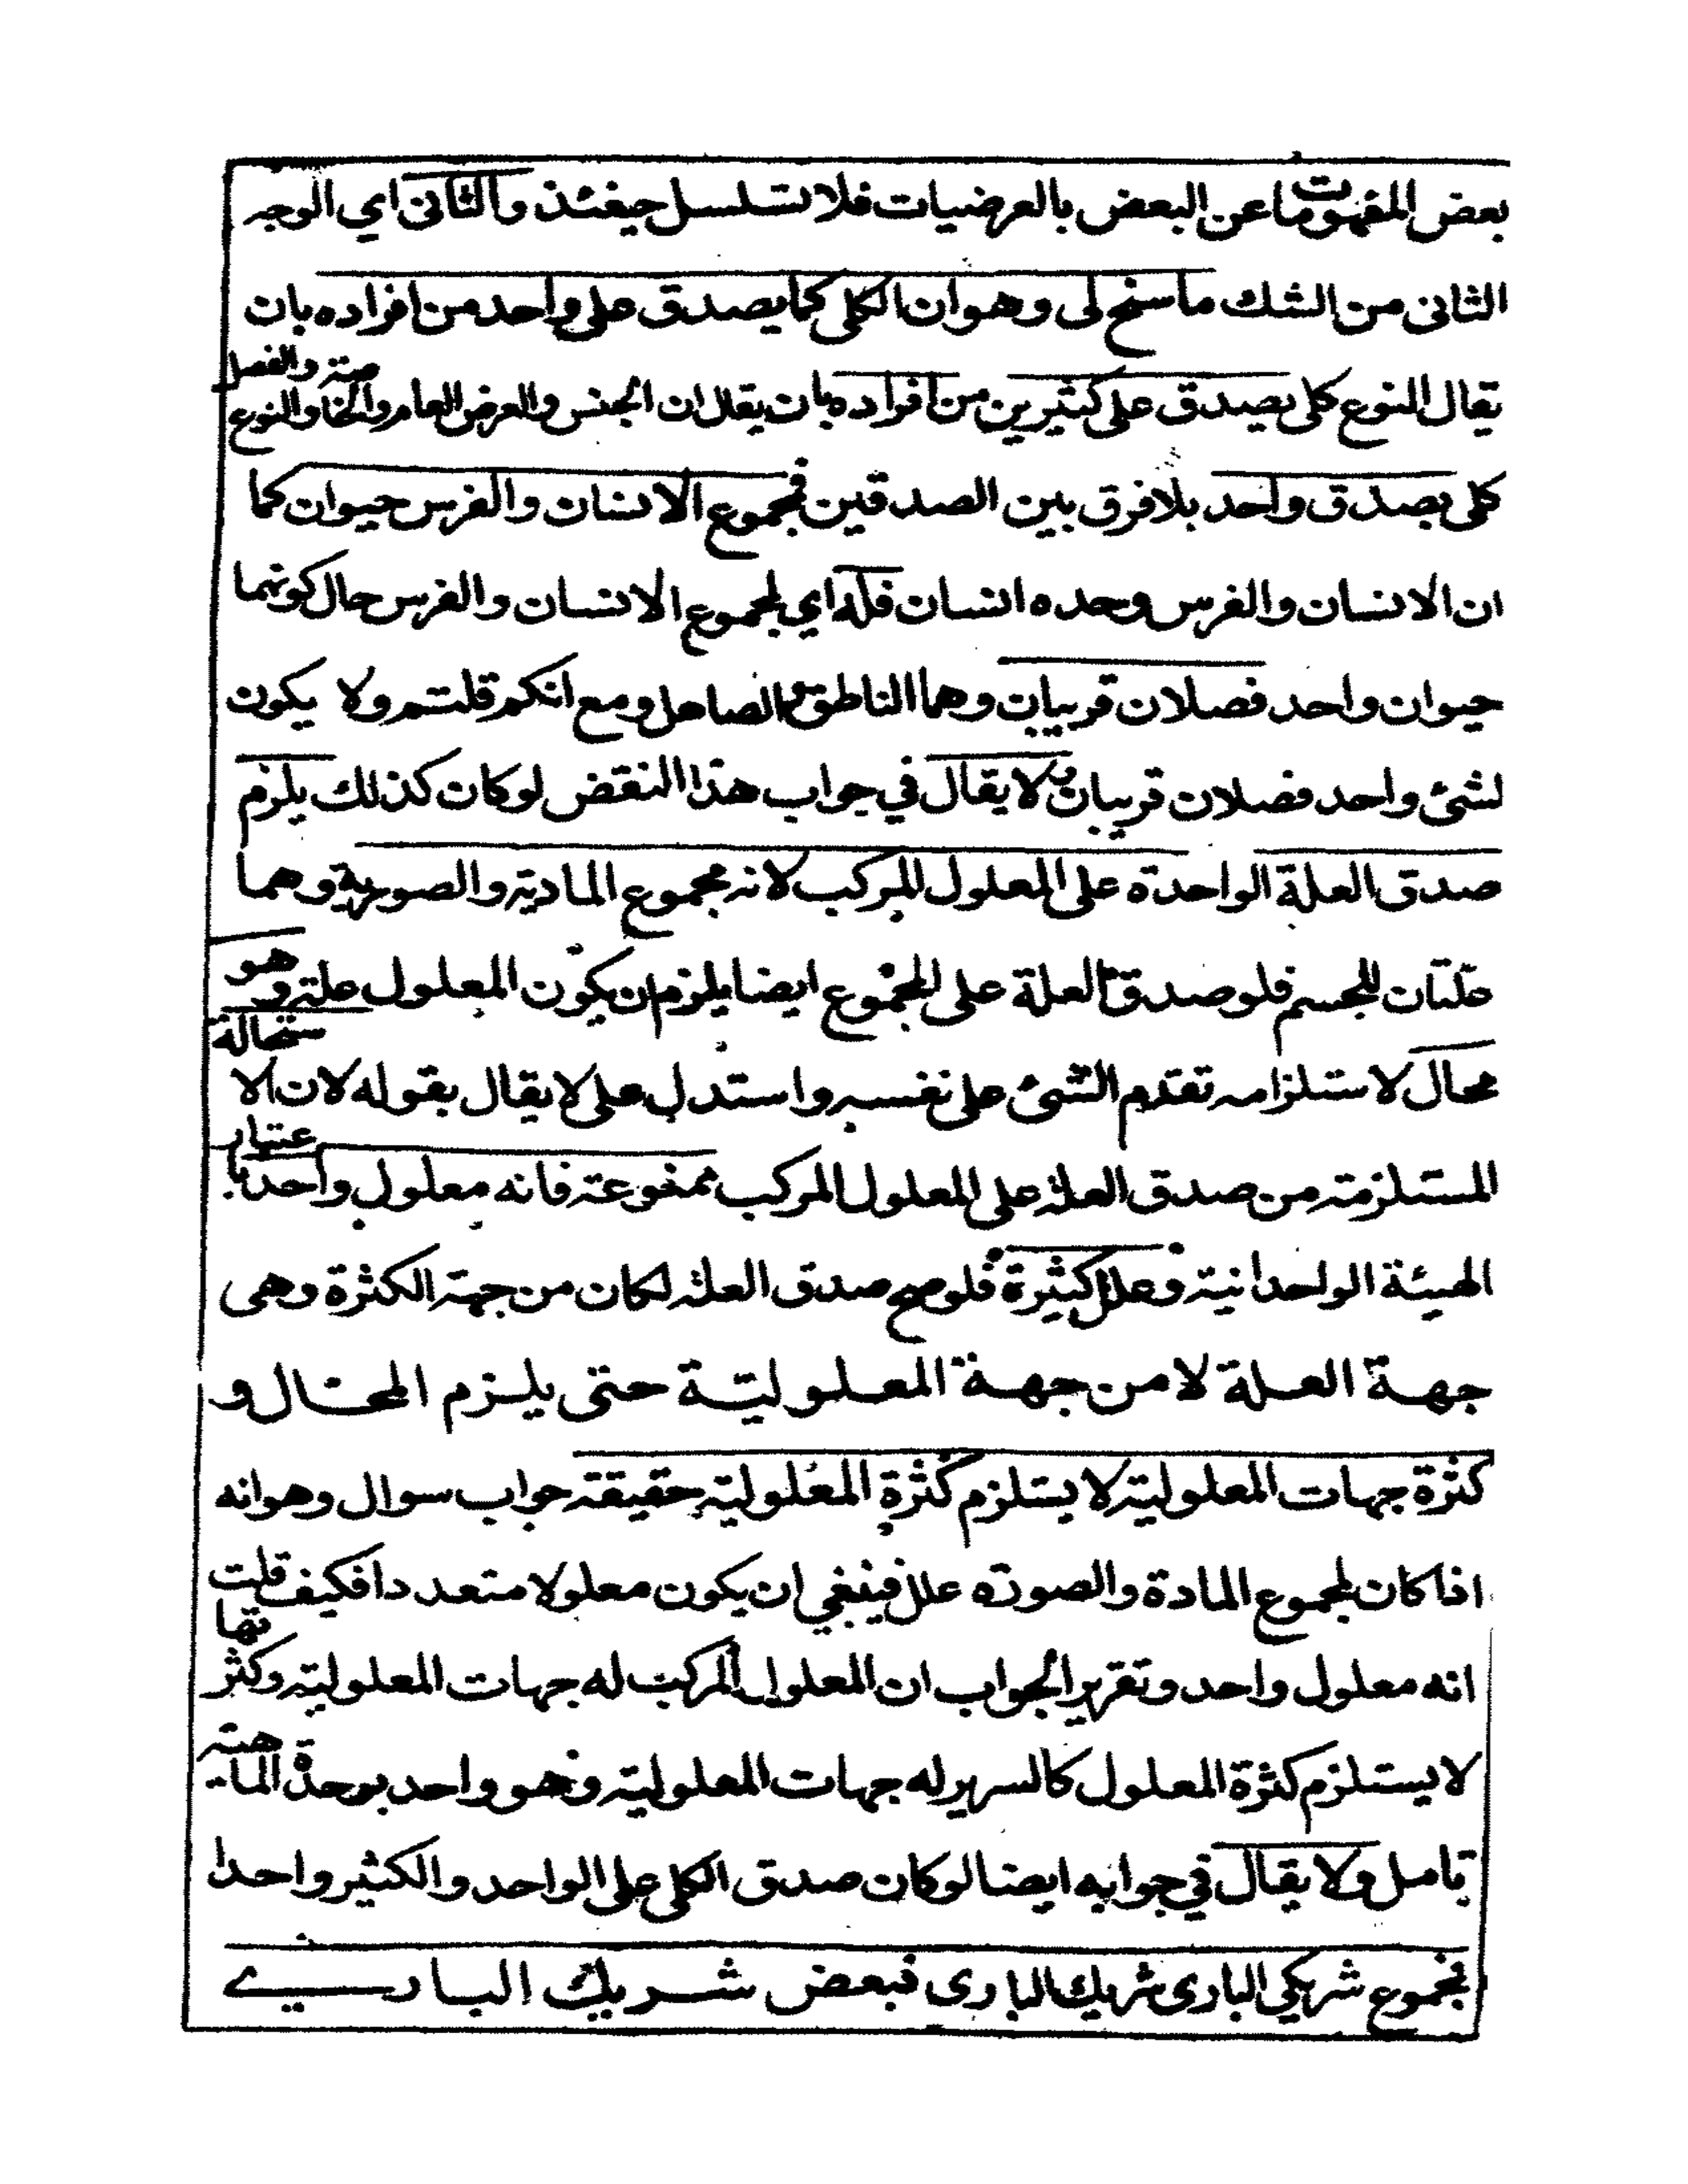 بعض المفهومات عن البعض بالعرضيات فلا تسلسل حينئذ والثانى اي الوجه
الثانى من الشك ما سنح لى وهو ان الكلى كما يصدق على واحد من افراده بان
يقال النوع كلى يصدق على كثيرين من افراده بان يقال ان الجنس والعرض العام والخاصته والفصل والنوع
كلى بصدق واحد بلا فرق بين الصدقين فمجموع الانسان والفرس حيوان كما
ان الانسان والفرس وحده انسان فله اي لمجموع الانسان والفرس حال كونهما
حيوان واحد فصلان قريبان وهما الناطق والصاهل ومع انكم قلتم ولا يكون
لشئ واحد فصلان قريبان ولا يقال في جواب هذا النقض لو كان كذلك يلزم
صدق العلة الواحدة على المعلول المركب لانه مجموع المادية والصورية وهما
علتان للجسم فلو صدق العلة على المجموع ايضا يلزم ان يكون المعلول علته وهو
محال لاستلزامه تقدم الشئ على نفسه واستدل على لا يقال بقوله لان الاستحالة
المستلزمته من صدق العلة على المعلول المركب ممنوعته فانه معلول واحد باعتبار
الهيئة الواحدانية وعلل كثيرة فلو صح صدق العلة لكان من جهة الكثرة وهى
جهة العلة لا من جهة المعلولية حتى يلزم المحال و
كثرة جهات المعلولية لا يستلزم كثرة المعلولية حقيقة جواب سوال وهو انه
اذا كان لمجموع المادة والصورة علل فينبغي ان يكون معلولا متعددا فكيف قلت
انه معلول واحد وتقرير الجواب ان المعلول المركب له جهات المعلولية وكثرتها
لا يستلزم كثرة المعلول كالسرير له جهات المعلولية وهو واحد بوحدة الماهيته
تامل ولا يقال في جوابه ايضا لو كان صدق الكلى على الواحد والكثير واحدا
فمجموع شريكي البارى شريك البارى فبعض شريك البارى